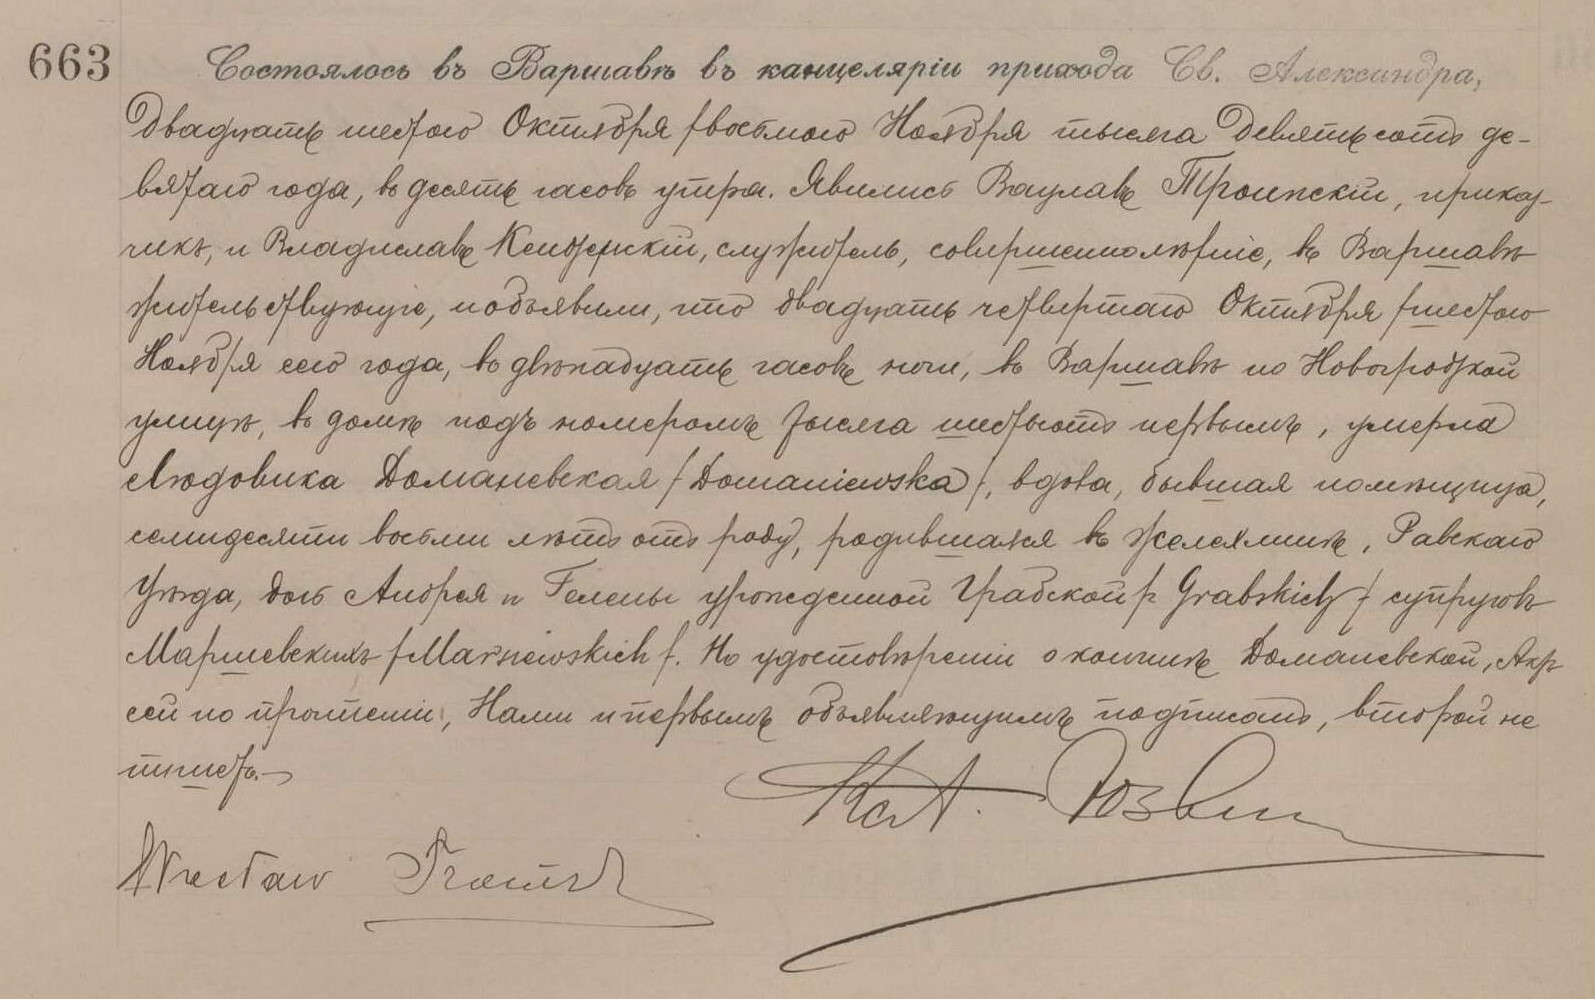 663 Состоялось въ Варшавѣ въ канцеляріи прихода Св. Александра,
двадцать шестого Октября /восьмого Ноября тысяча девятьсотъ де-
вятаго года, въ десять часовъ утра. Явились Вацлавъ Троинскій, приказ-
чикъ, и Владиславъ служитель, совершеннолѣтніе, въ Варшавѣ
жительствующіе, и объявили, что двадцать четвертаго Октября /шестого
Ноября сего года, въ двѣнадцать часовъ ночи, въ Варшавѣ по Новогродзкой
улицѣ, въ домѣ подъ номеромъ тысяча шестьсотъ первымъ, умерла
Людовика Доманевская /Domaniewska/, вдова, бывшая помѣщица,
семидесяти восьми лѣтъ отъ роду, родившаяся въ Равскаго
уѣзда, дочь Андрея и Гелены урожденной Грабской /Grabskich/ супруговъ
Маршевскихъ /Marszewskich/. По удостовѣреніи о кончинѣ Доманевской, Актъ
сей по прочтеніи, Нами и первымъ объявляющимъ подписанъ, второй не
пишетъ.
Кс. А.
Wacław